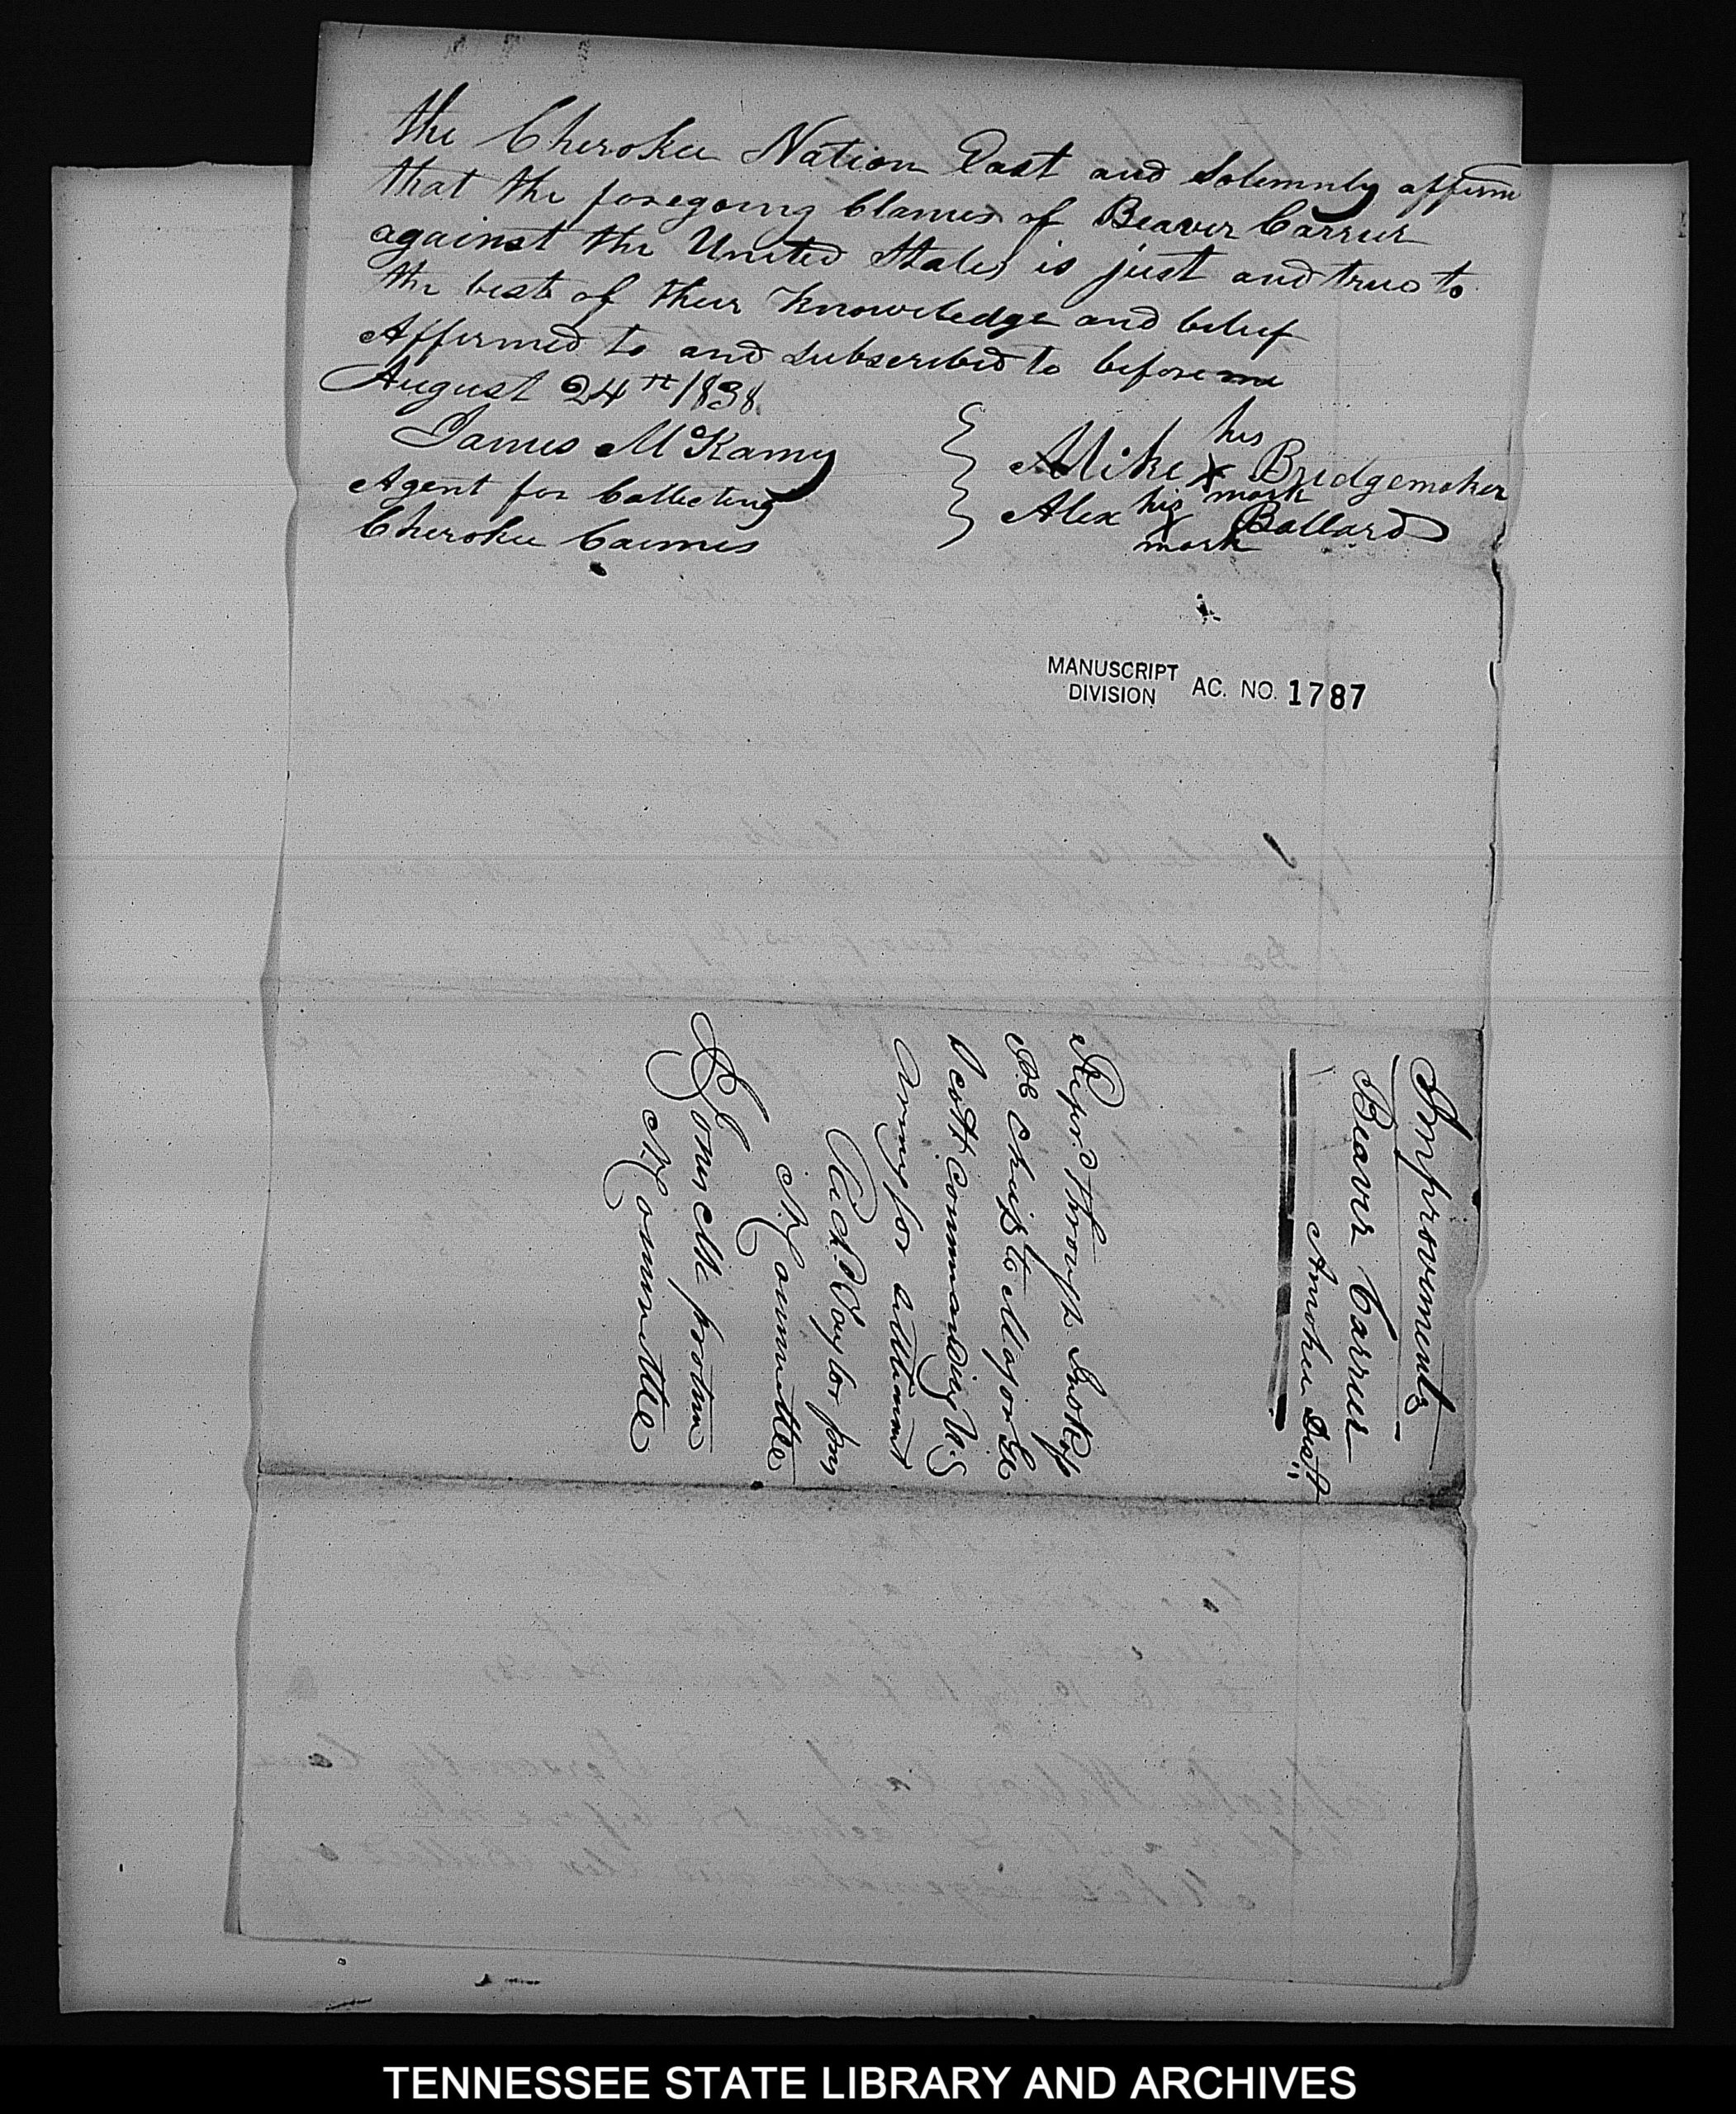 the Cherokee Nation East and Solemnly affirm
that the foregoing Clames of Beaver Carrier
against the United States is just and true to
the best of their knowledge and belief
Affirmed to and subscribed to before me
August 24th 1838
James McKamy
Agent for Collecting
Cherokee Caimes
his
Mike X Bridgemaker
mark
his
Alex X Ballard
mark
MANUSCRIPT
DIVISION AC. NO. 1787
Improvements
Beaver Carrier
Amohee Dist
Through
Scott commanding U.S
Army for
Rich Taylor for
Committee
protem
N. Committee
TENNESSEE STATE LIBRARY AND ARCHIVES